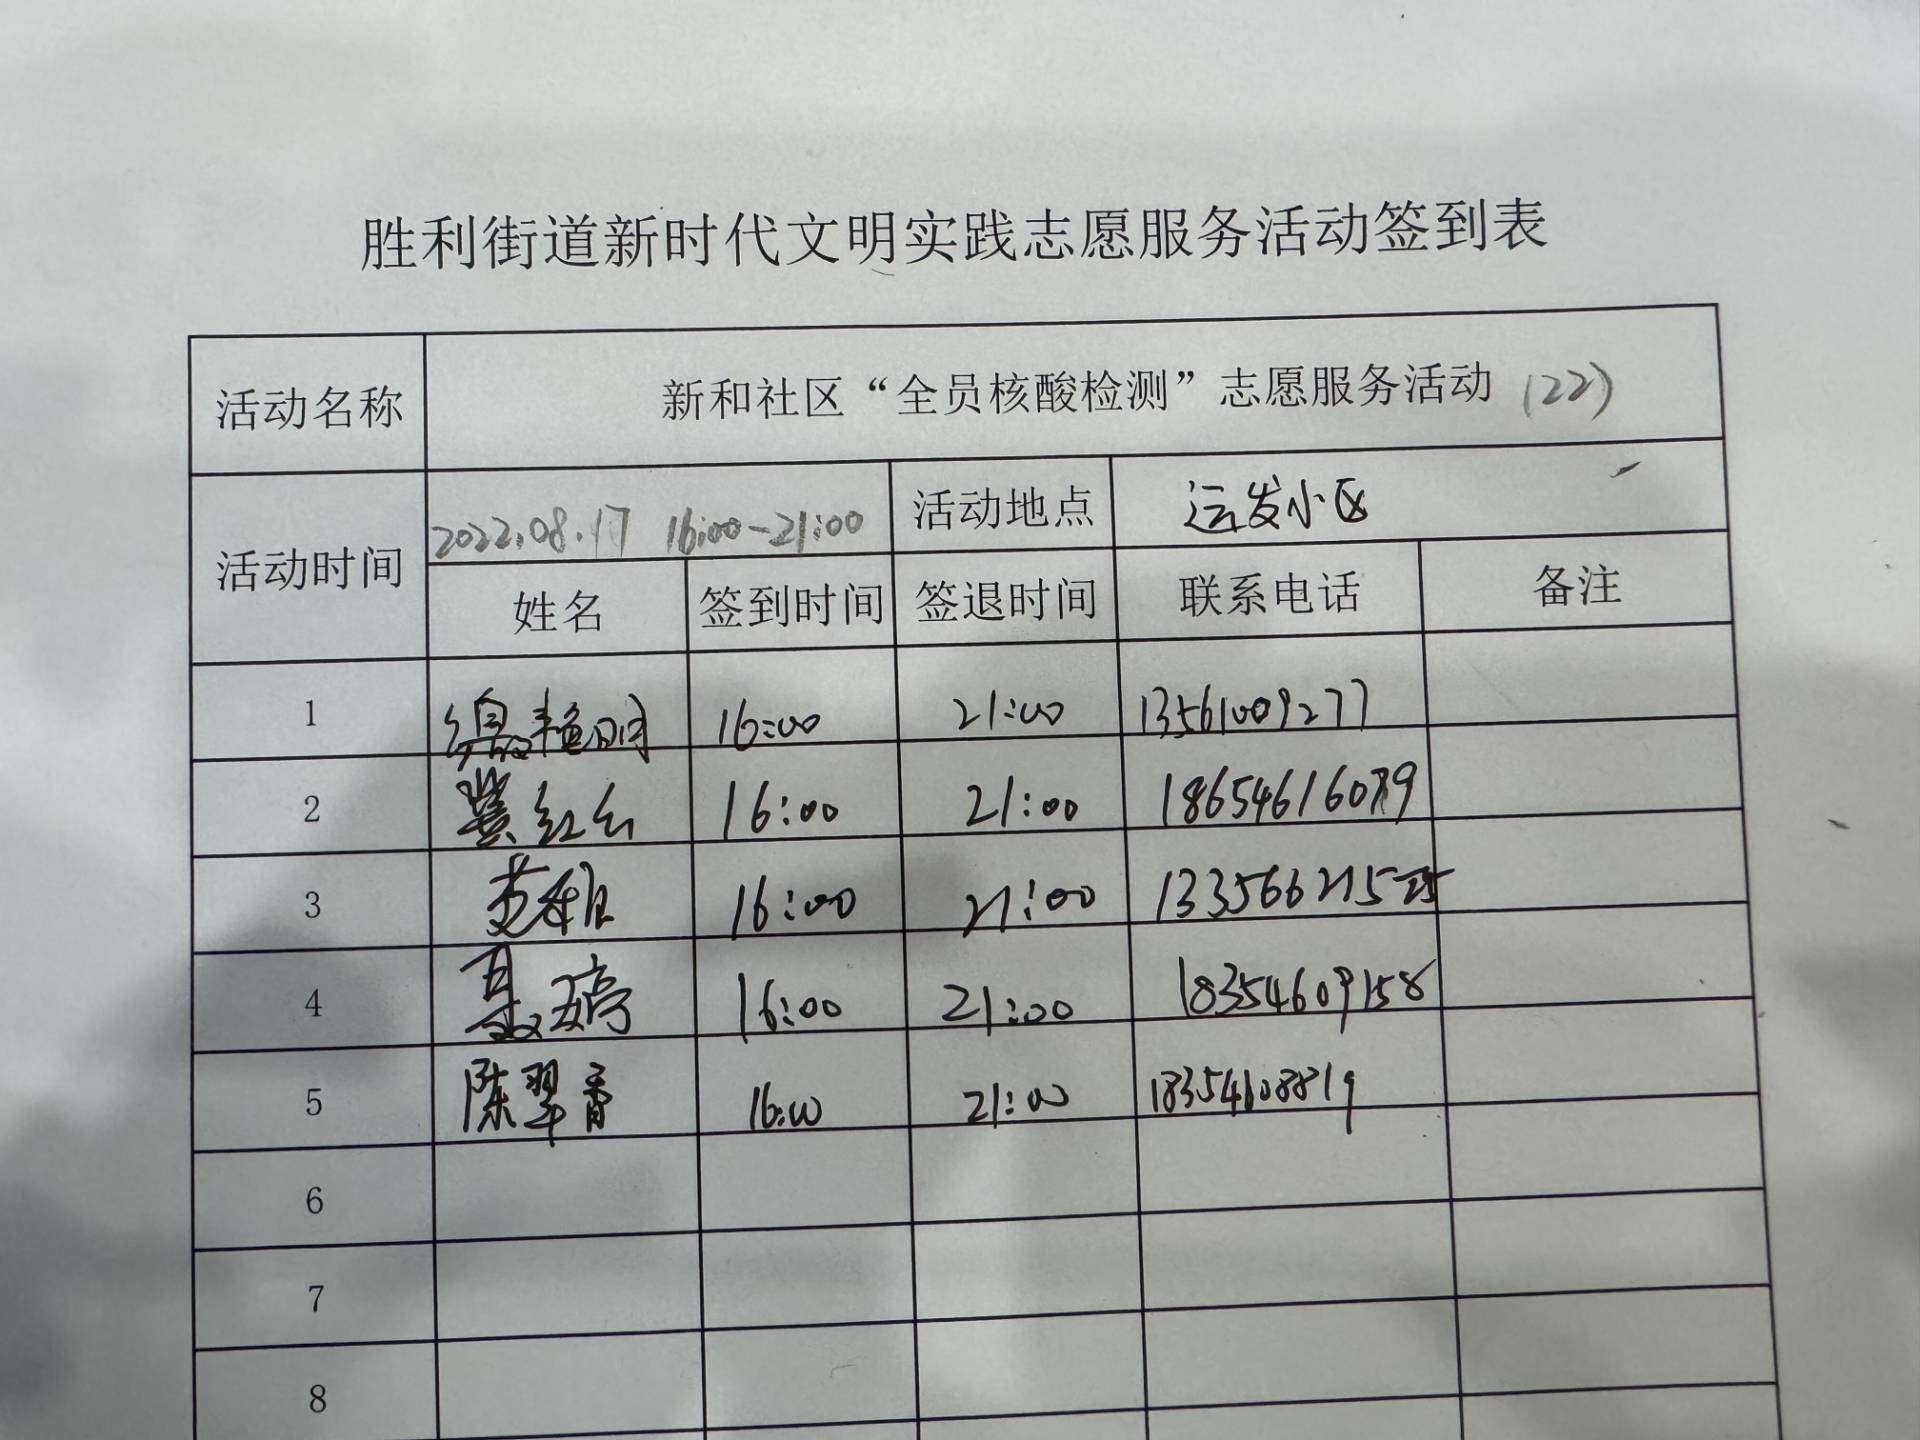 胜利街道新时代文明实践志愿服务活动签到表
活动名称 新和社区“全员核酸检测”志愿服务活动 (22)
活动时间 2022.08.17 16:00-21:00 活动地点 运发小区
姓名 签到时间 签退时间 联系电话 备注
1 16:00 21:00 13561009277
2 冀红云 16:00 21:00
3 16:00 21:00
4 聂婷 16:00 21:00 18354609158
5 陈翠香 16:00 21:00 18354608819
6
7
8